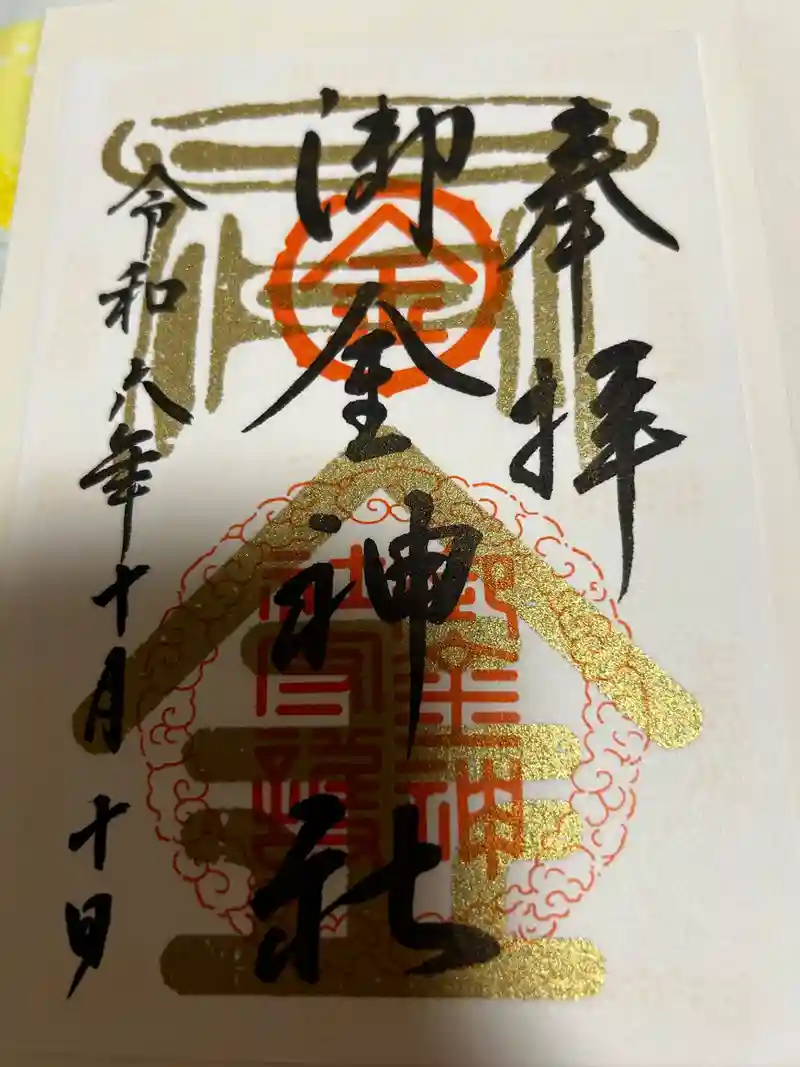 奉拝
御金神社
令和六年十月十日
金
御金神
社守護